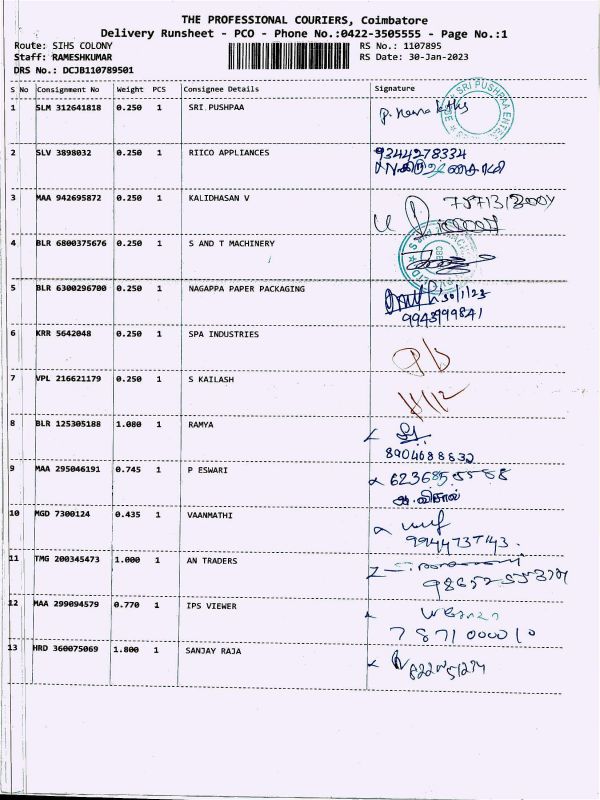 THE PROFESSIONAL COURIERS, Coimbatore
Delivery Runsheet - PCO - Phone No.:0422-3505555 - Page No.:1
Route: SIHS COLONY RS No.: 1107895
Staff: RAMESHKUMAR RS Date: 30-Jan-2023
DRS No.: DCJB110789501
S No Consignment No Weight PCS Consignee Details Signature
1 SLM 312641818 0.250 1 SRI PUSHPAA
SRI PUSHPAA
2 SLV 3898032 0.250 1 RIICO APPLIANCES 9344278334
3 MAA 942695872 0.250 1 KALIDHASAN V
4 BLR 6800375676 0.250 1 S AND T MACHINERY
5 BLR 6300296700 0.250 1 NAGAPPA PAPER PACKAGING 30/1/23
9943999841
6 KRR 5642048 0.250 1 SPA INDUSTRIES
7 VPL 216621179 0.250 1 S KAILASH
8 BLR 125305188 1.080 1 RAMYA
8904688832
9 MAA 295046191 0.745 1 P ESWARI
10 MGD 7300124 0.435 1 VAANMATHI
9944737143.
11 TMG 200345473 1.000 1 AN TRADERS
12 MAA 299094579 0.770 1 IPS VIEWER
7871000010
13 HRD 360075069 1.800 1 SANJAY RAJA